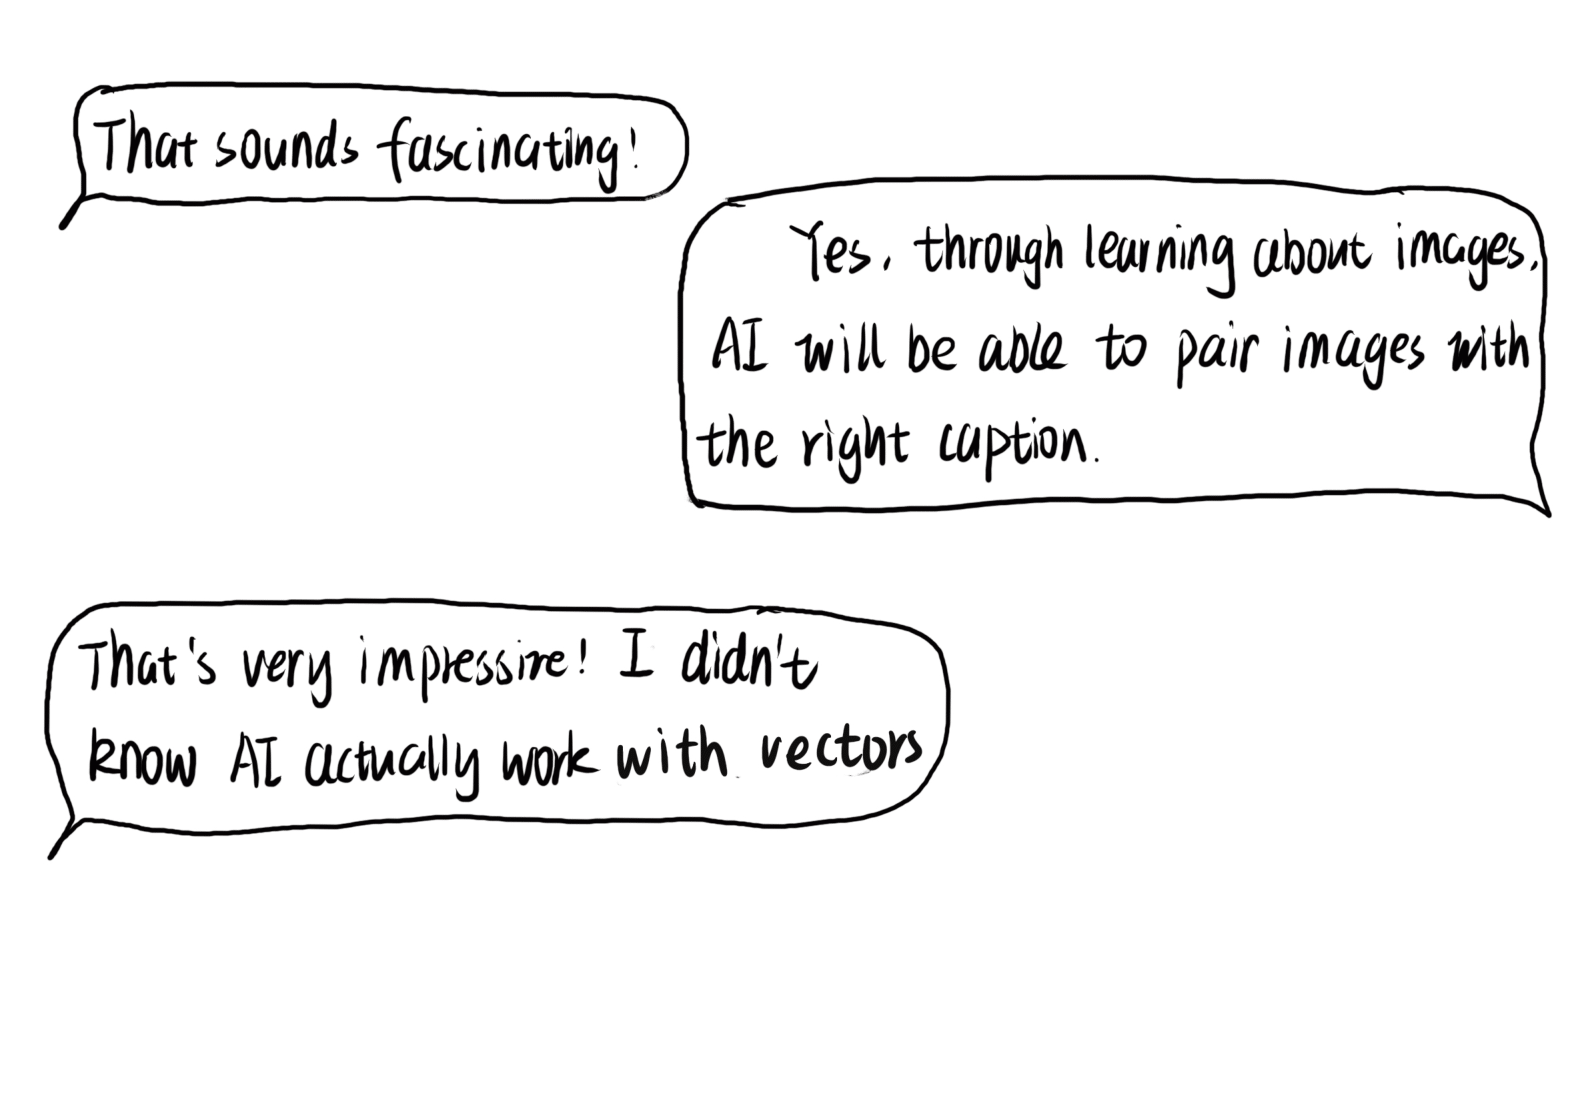 That sounds fascinating!
Yes, through learning about images,
AI will be able to pair images with
the right caption.
That's very impressive! I didn't
know AI actually work with vectors